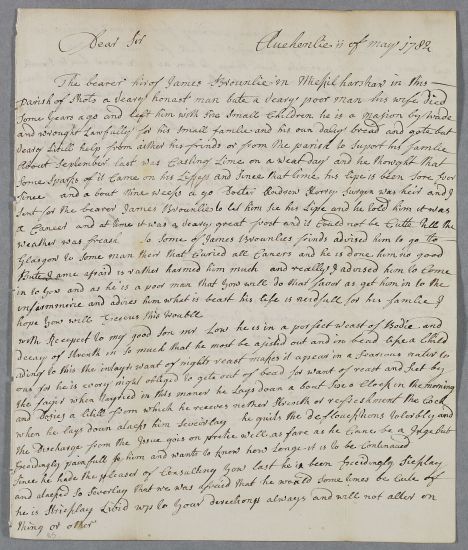 Dear Sir Auchenlie 11 of may 1782
The bearer hirof James Brownlie in Muspil harshaw in this
parish of Shots a veary honast man bute a veary poor man his wife died
Some years ago and left him with five Small Children he is a mason by trade
and wrought Lawfully for his Small familie and his our dayly bread and gote but
veary Litill help from either his frinds or from the parish to Suport his familie
About September last was Casting Lime on a weat day and he thought that
Some Sparks of it Came on his Lipps and Since that time his lipe is been Sore Ever
Since and about Nine weeks a go Docter Andrew Surgen was heir and I
Sent for the bearer James Brownlie to let him See his Lipe and he told him it was
a Cancer and at time it was a veary great frost and it Could not be Cutte till the
weather was freash So Some of James Brownlies frinds advised him to go to
Glasgow to Some man their that Curied all Cancers and he is done him no good
Bute I ame afraid is rather harmed him much and really I advised him to Come
in to yow and as he is a poor man that yow will do that favor as get him in to the
infarmmerie and advies him what is beast his life is nerdfull for his familie I
hope yow will Excuse this trouble
with Respect to my good son mr Low he is in a perfect weast of Bodie and
decay of Strenth in So much that he most be asisted out and in bead like a Child
ading to this the inlayt want of nights reast makes it apear in a Searious nater to
ous for he is every night obliged to gete out of bead for want of reast and Seet by
the fayer when tayried in this maner he Lays down a bout five a Clock in the morning
and a Litill from which he receves nether Strenth or refreshment the Cock
when he lays down aleaps him Severlay he quits the defluckstions tolerbly and
the Discharge from the Issue goes on pretie well as fare as he Cane be a Judge but
Excidingly painfull to him and wants to know how Longe it is to be Continued
Since he hade the pleaser of Consulting yow last he is been Excidingly Sieplay
and aleaped So Severlay that we was afraid that he would Some times be
he is Strieplay Libid up to your derechons always and will not aller on
thing or other
85